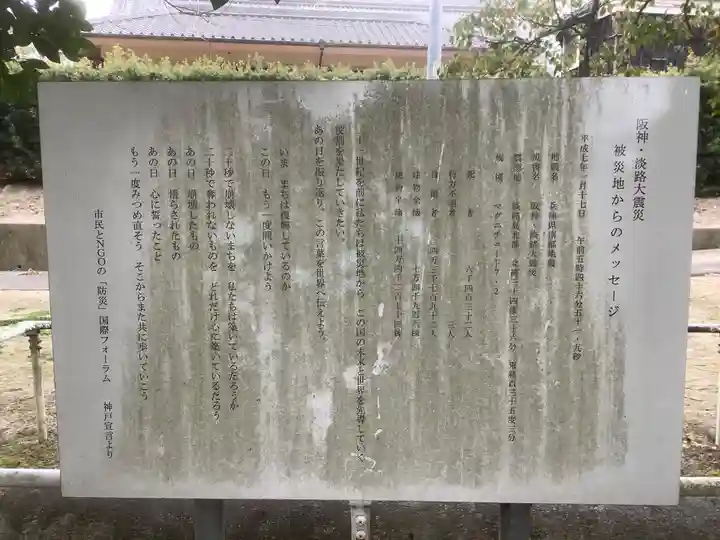 阪神・淡路大震災
被災地からのメッセージ
平成七年一月十七日 午前五時四十六分五十一・九秒
地震名 兵庫県南部地震
災害名 阪神・淡路大震災
震源地 淡路島北部 北緯三十四度三十六分 東経百三十五度三分
規模 マグニチュード7・2
死者 六千四百三十二人
行方不明者 三人
負傷者 四万三千七百九十二人
建物全焼
建物全壊
二十一世紀を前に私たちは被災地から この国の未来と世界を先導していく
役割を果たしていきたい。
あの日を振り返り、この言葉を世界へ伝えよう。
いま まちは復興しているのか
この日 もう一度問いかけよう
二十秒で崩壊しないまちを 私たちは築いているだろうか
二十秒で奪われないものを どれだけ心に築いているだろう
あの日 崩壊したもの
あの日 悟らされたもの
あの日 心に誓ったこと
もう一度みつめ直そう そこからまた共に歩いていこう
市民とNGOの「防災」国際フォーラム 神戸宣言より